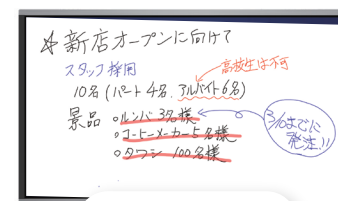 ☆新店オープンに向けて
スタッフ採用
高校生は不可
10名(パート4名、アルバイト6名)
景品 ○ルンバ 3名様
○コーヒーメーカー 5名様
○タワシ 100名様
3/10までに
発注!!